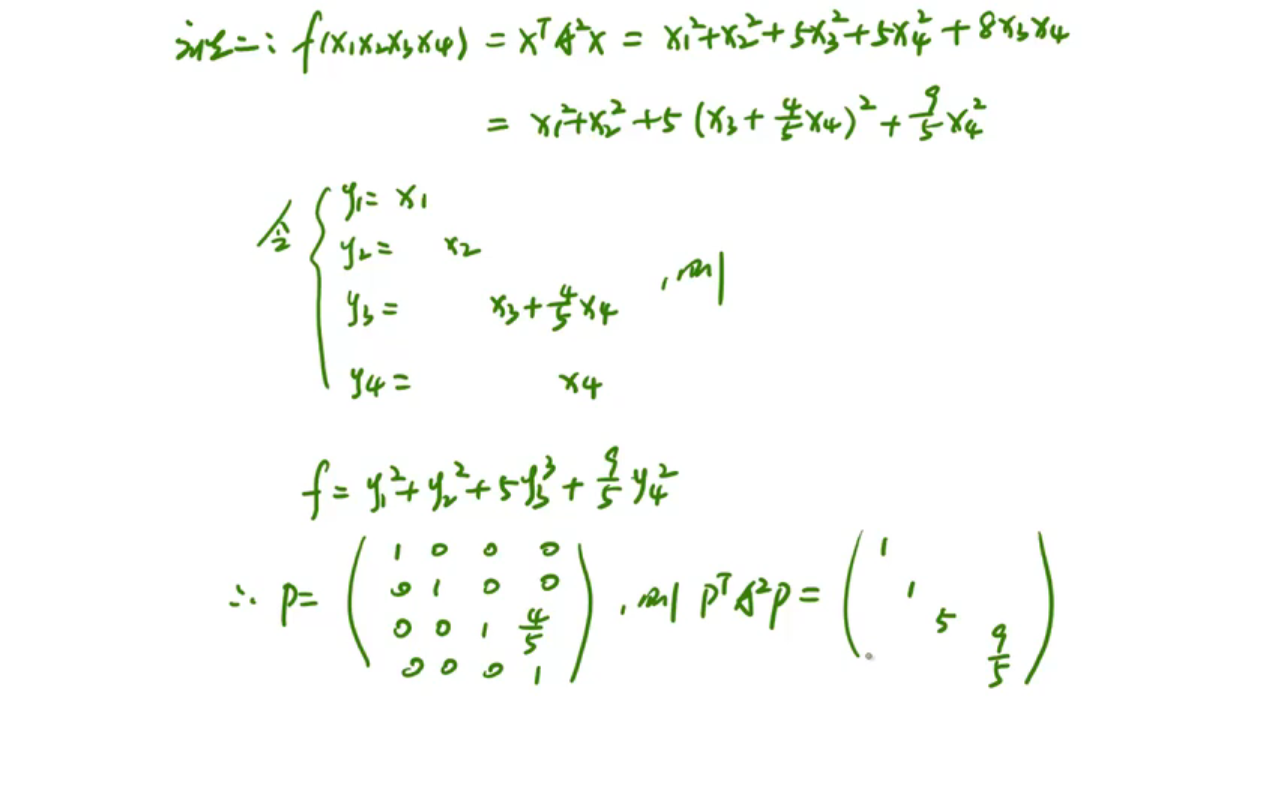 法二: f(x₁x₂x₃x₄) = xᵀA²x = x₁²+x₂²+5x₃²+5x₄²+8x₃x₄
= x₁²+x₂²+5(x₃+4/5x₄)²+9/5x₄²
令 { y₁= x₁
y₂= x₂
y₃= x₃+4/5x₄ ,则
y₄= x₄
f= y₁²+y₂²+5y₃³+9/5y₄²
∴ P= ( 1 0 0 0 ; 0 1 0 0 ; 0 0 1 4/5 ; 0 0 0 1 ) ,则 PᵀA²P = ( 1 1 5 9/5 )